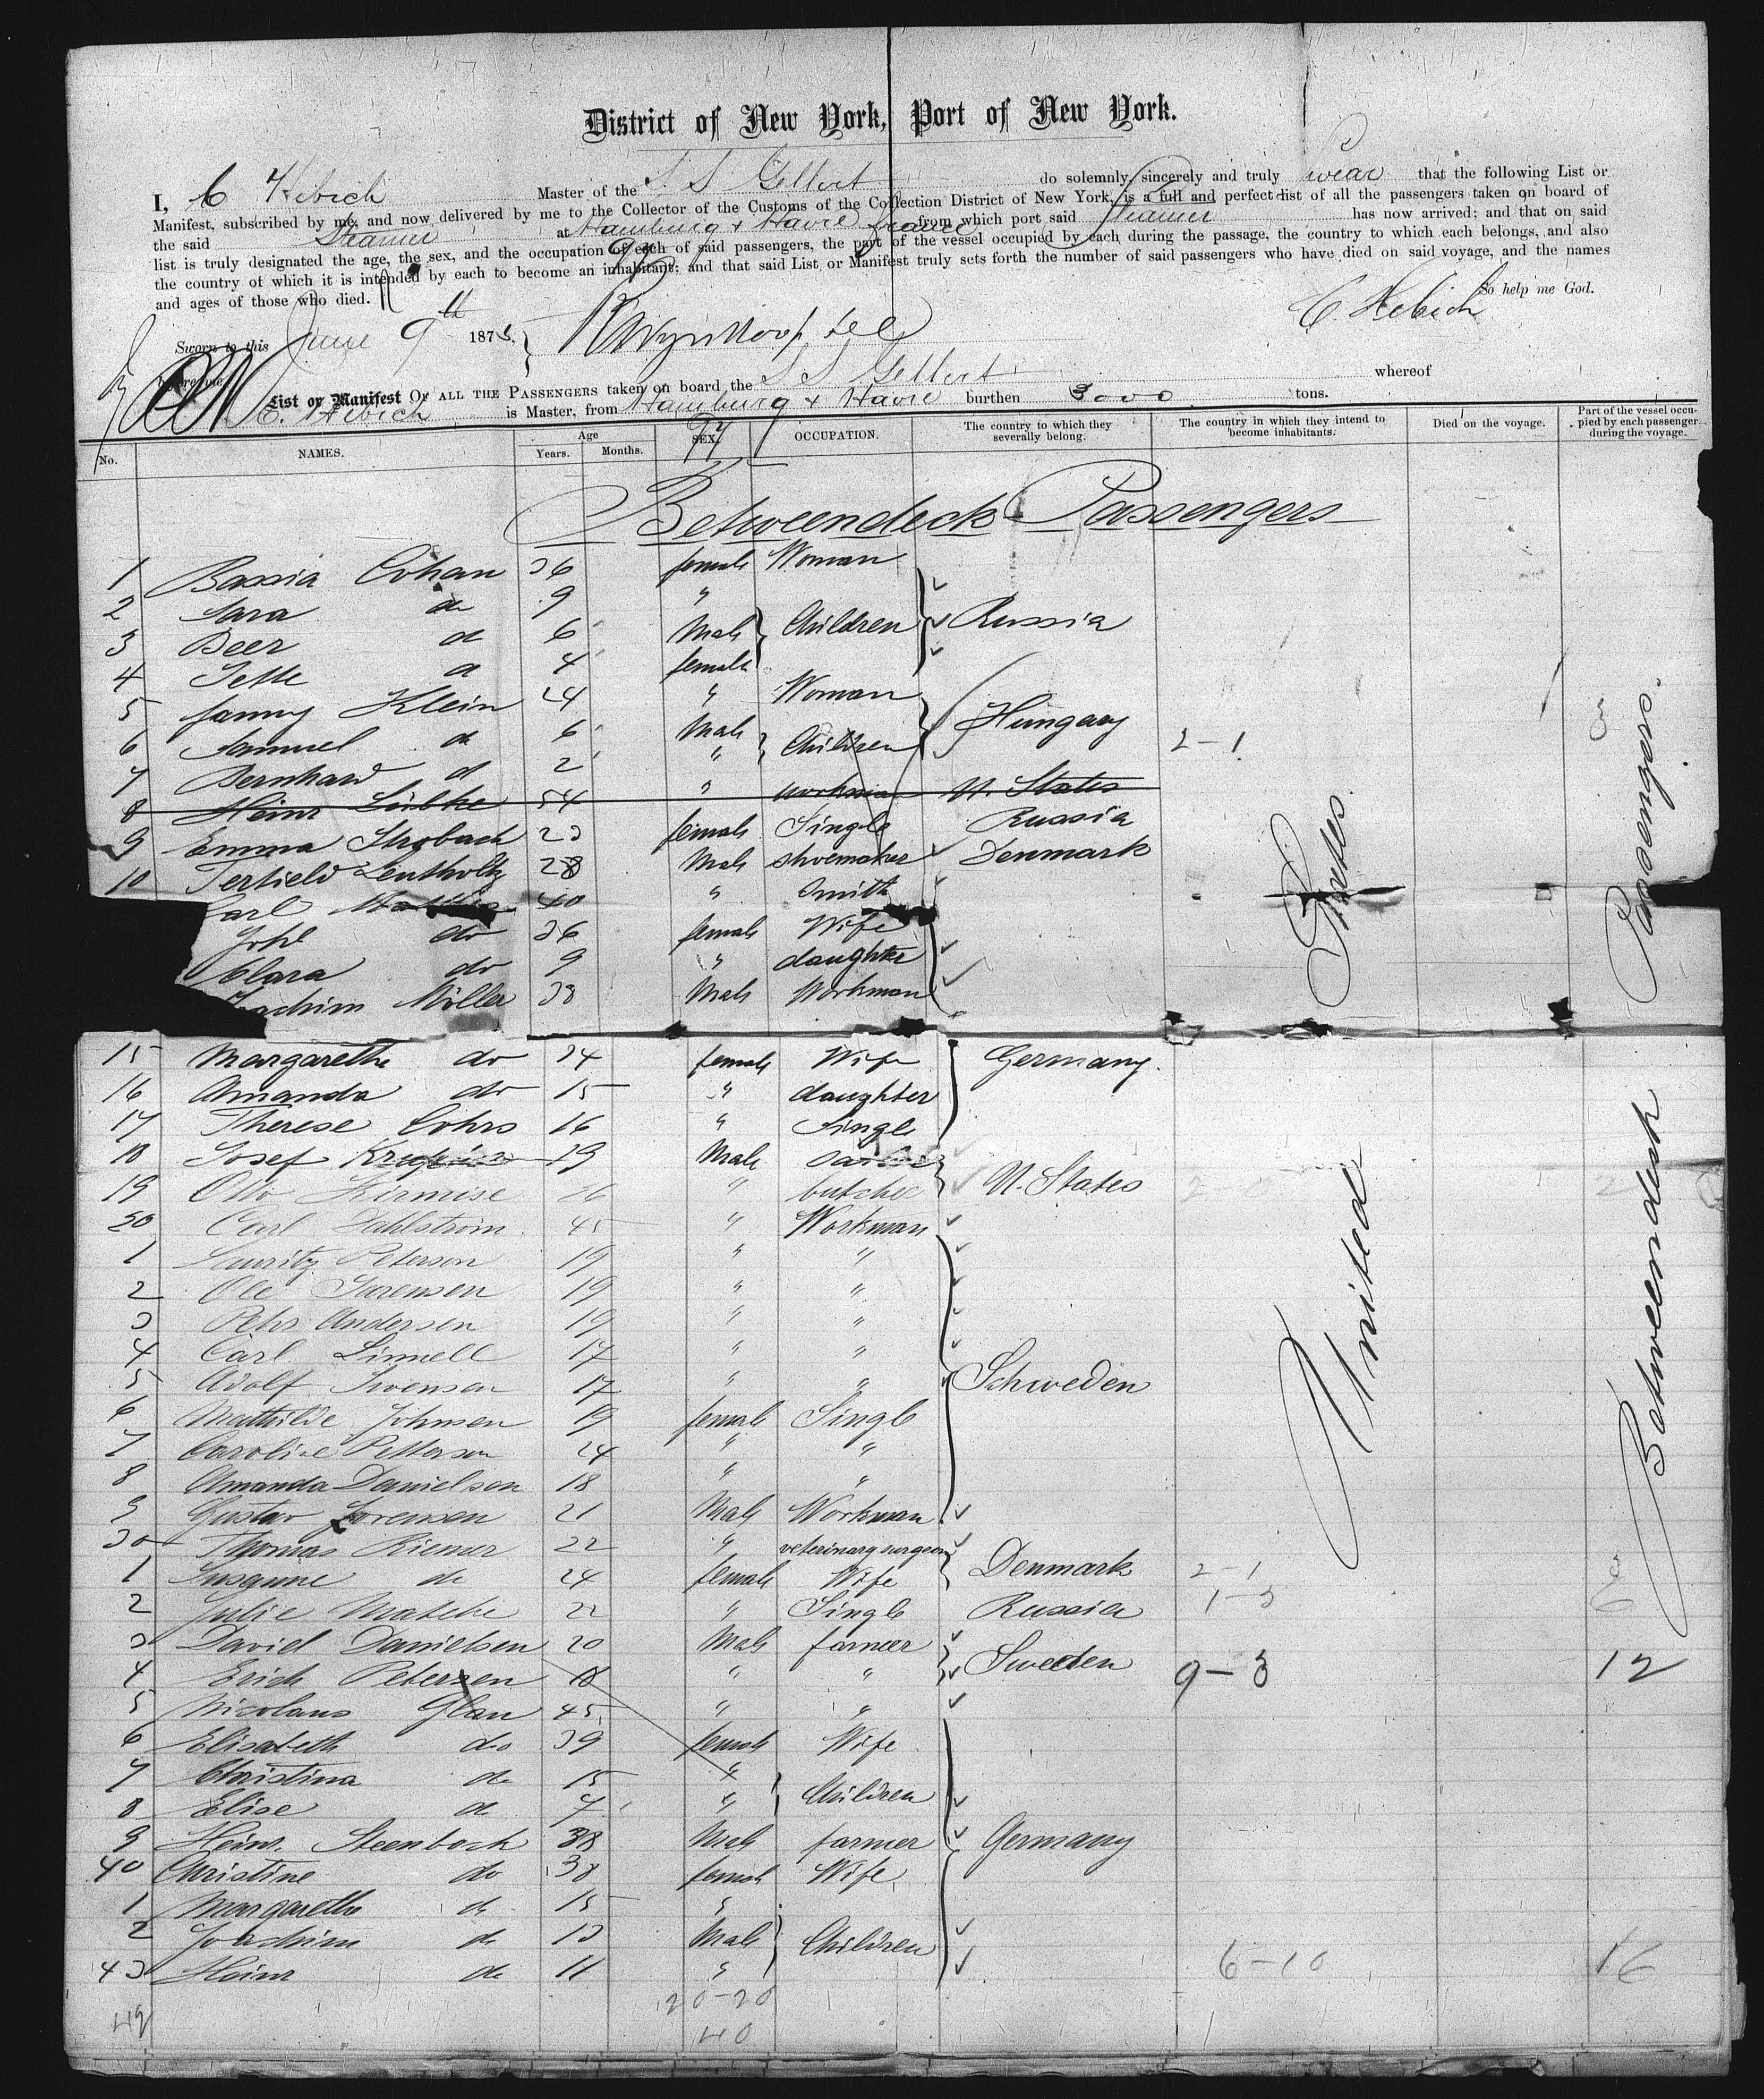 District of New York, Port of New York.
I, C Hebich Master of the S. S Gellert do solemnly, sincerely and truly swear that the following List or
Manifest, subscribed by me, and now delivered by me to the Collector of the Customs of the Collection District of New York, is a full and perfect list of all the passengers taken on board of
the said Steamer at Hamburg + Havre from which port said Steamer has now arrived; and that on said
list is truly designated the age, the sex, and the occupation of each of said passengers, the part of the vessel occupied by each during the passage, the country to which each belongs, and also
the country of which it is intended by each to become an inhabitant; and that said List or Manifest truly sets forth the number of said passengers who have died on said voyage, and the names
and ages of those who died. So help me God.
C. Hebich
Sworn to this June 9th 187
before me
List or Manifest OF ALL THE PASSENGERS taken on board the S S Gellert whereof
C. Hebich is Master, from Hamburg + Havre burthen 3000 tons.
No. NAMES. Age Years. Months. SEX. OCCUPATION. The country to which they severally belong. The country in which they intend to become inhabitants. Died on the voyage. Part of the vessel occupied by each passenger during the voyage.
Betweendeck Passengers
1 Bassia Cohan 36 female Woman
2 Sara do 9 "
3 Beer do 6 Male Children Russia
4 Jette do 4 female
5 Fanny Klein 24 " Woman
6 Samuel do 6 Male Children Hungary 2-1 3
7 Bernhard do 2 "
8 Heinr Lübke 54 " workman U. States
9 Emma Strobach 23 female Single Russia
10 Lentholtz 28 Male shoemaker Denmark
Carl 40 " Smith
do 36 female Wife
Clara do 9 " daughter
Joachim Möller 38 Male Workman
15 Margarethe do 34 female Wife Germany.
16 Amanda do 15 " daughter
17 Therese Cohrs 16 " Single
18 Josef 39 Male
19 Otto 26 " butcher U. States
20 Carl Dahlstrom 45 " Workman
1 Lauritz Peterson 19 " "
2 Ole Sorensen 19 " "
3 Pehr Andersen 19 " "
4 Carl Linnell 17 " "
5 Adolf Swensen 17 " " Schweden
6 Mathilde Johnsen 19 female Single
7 Caroline Petterson 24 " "
8 Amanda Danielson 18 " "
9 Gustav Sorensen 21 Male Workman
30 Thomas Riemer 22 " veterinary surgeon
1 Susanne do 24 female Wife Denmark 2-1 3
2 Julie 22 " Single Russia 1-5 6
3 David Danielsen 20 Male farmer
4 Erich Petersen 18 " " Sweden 9-3 12
5 Nicolaus Glan 45 " "
6 Elisabeth do 39 female Wife
7 Christina do 15 " Children
8 Elise do 7 "
9 Heinr. Steenbock 38 Male farmer Germany
40 Christine do 38 female Wife
1 Margarethe do 15 "
2 Joachim do 13 Male Children
43 Heinr do 11 " 6-10 16
20-20
40
United States
Betweendeck Passengers.